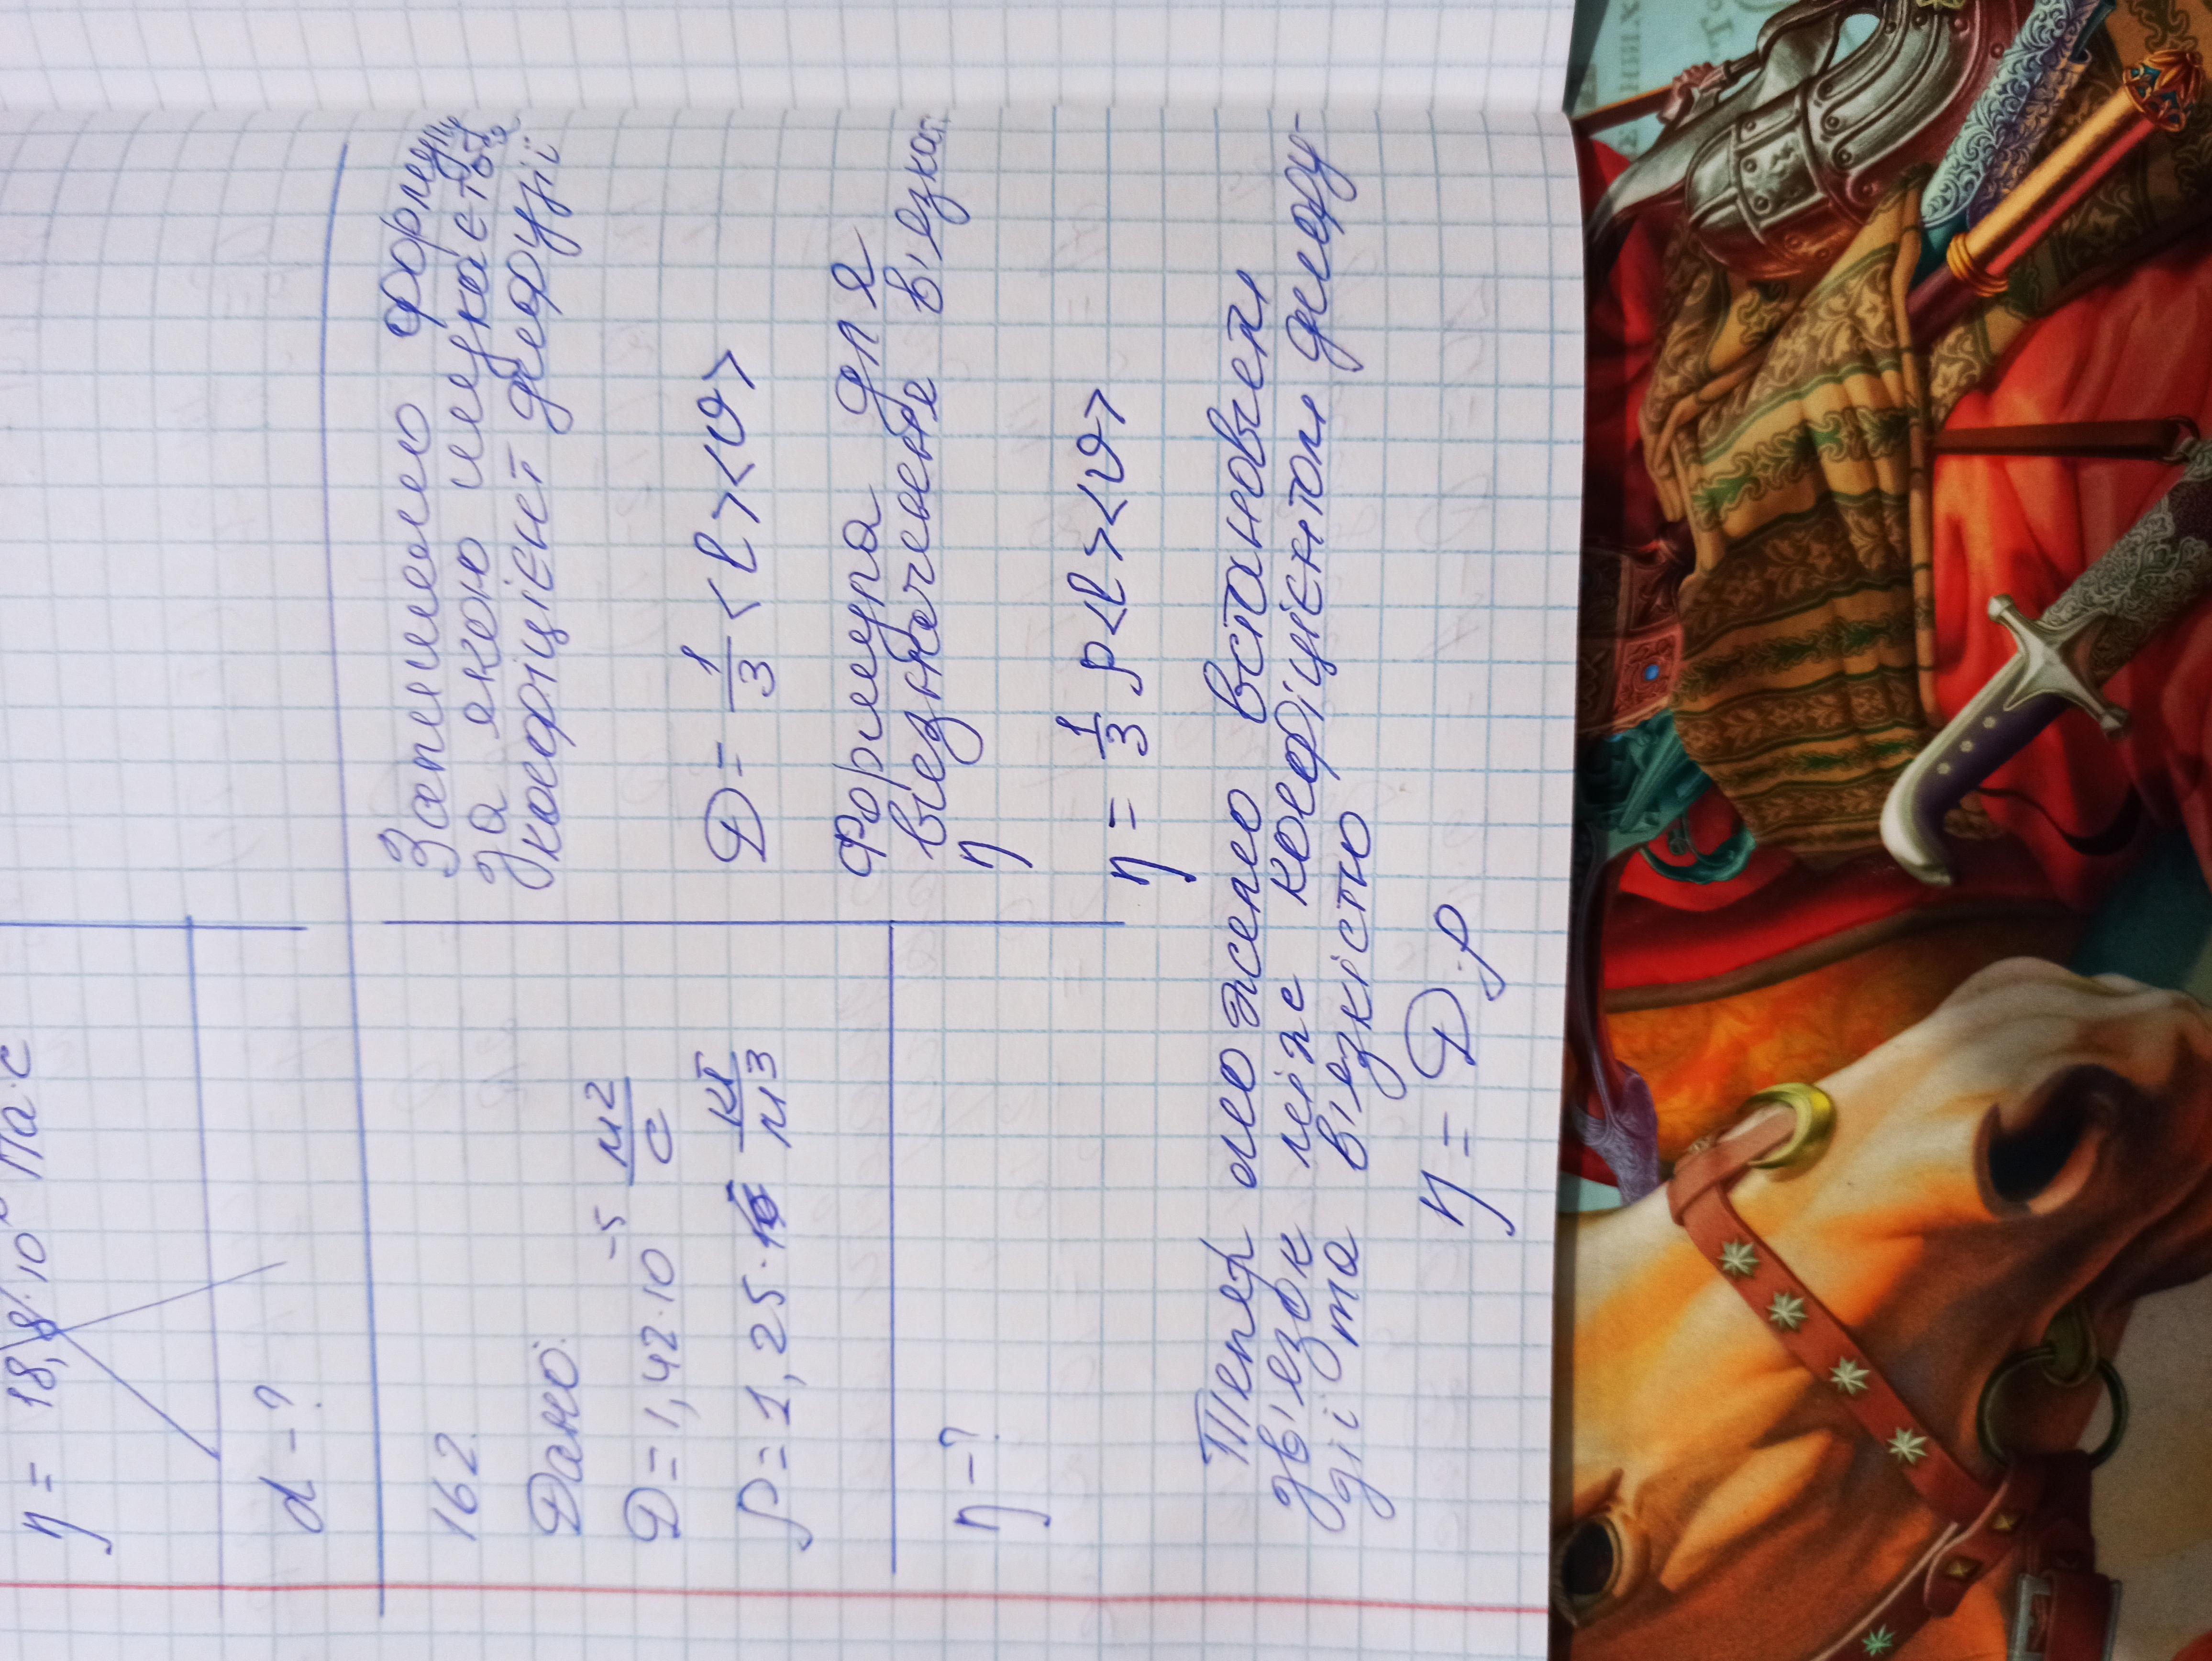 η = 18,8·10 Па·с
d-?
162.
Дано:
D = 1,42·10⁻⁵ м²/с
ρ = 1,25· кг/м³
η-?
Запишемо формулу
за якою шукаєтьс
коефіцієнт дифузії
D = 1/3 <l><υ>
Формула для
визначення в'язкост
η
η = 1/3 ρ<l><υ>
Тепер можемо встановити
зв'язок між коефіцієнтом дифу-
зії та в'язкістю
η = D·ρ